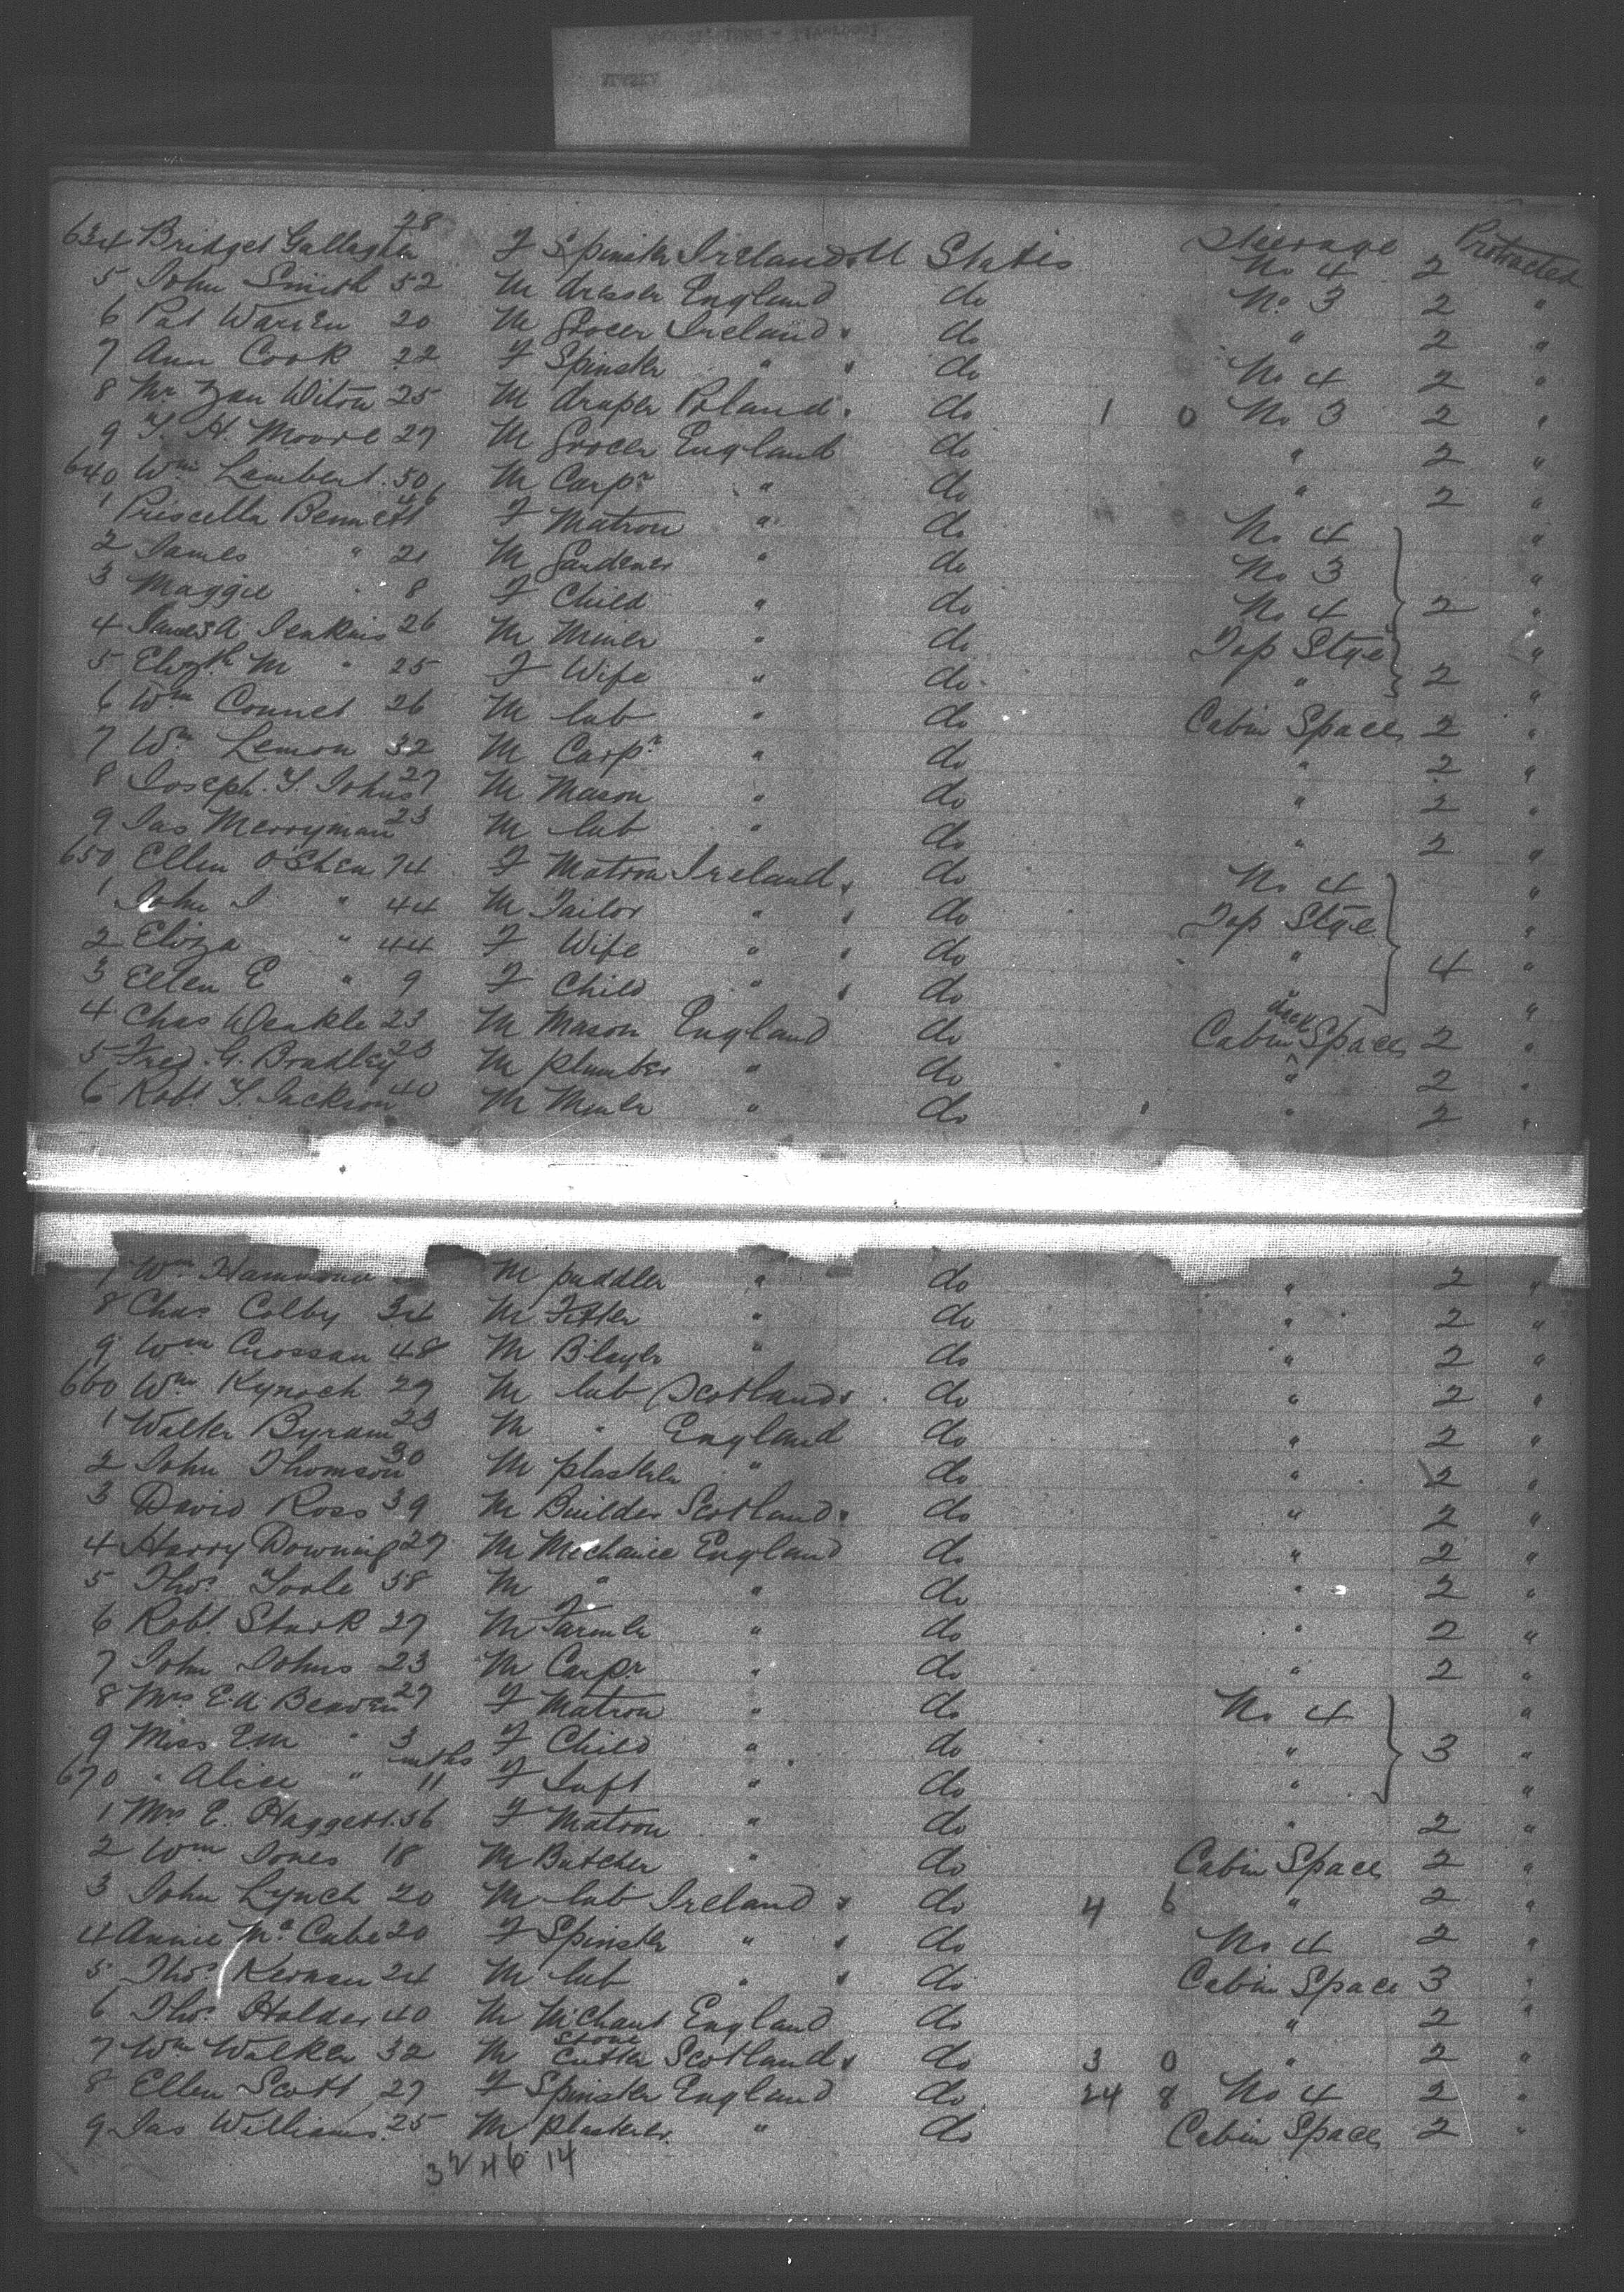 634 Bridget Gallagher 28 F Spinster Ireland U States Steerage No 4 2 Protracted
5 John Smith 52 M dresser England do No 3 2 "
6 Pat Warren 20 M Grocer Ireland do " 2 "
7 Ann Cook 22 F Spinster " do No 4 2 "
8 Mr Zan Witon 25 M draper Poland do 1 0 No 3 2 "
9 T. H. Moore 27 M Grocer England do " 2 "
640 Wm Lambert 50 M Carpr " do " 2 "
1 Priscella Bennett 46 F Matron " do No 4 "
2 James " 21 M Gardener " do No 3 "
3 Maggie " 8 F Child " do No 4 2 "
4 James A Jenkins 26 M Miner " do Top Stge "
5 Elizth M " 25 F Wife " do " 2 "
6 Wm Connet 26 M lab " do Cabin Space 2 "
7 Wm Lemon 32 M Carpr " do " 2 "
8 Joseph. T. Johns 27 M Mason " do " 2 "
9 Jas Merryman 23 M lab " do " 2 "
650 Ellen O'Shea 74 F Matron Ireland do No 4 "
1 John J " 44 M Tailor " do Top Stge "
2 Eliza " 44 F Wife " do " 4 "
3 Ellen E " 9 F Child " do "
4 Chas Weakle 23 M Mason England do Cabin deck Space 2 "
5 Fred. G. Bradley 23 M plumber " do " 2 "
6 Robt T. Jackson 40 M Miner " do " 2 "
7 Wm Hammond M puddler " do " 2 "
8 Chas Colby 34 M Fitter " do " 2 "
9 Wm Crossan 48 M Blayer " do " 2 "
660 Wm Kynoch 29 M lab Scotland do " 2 "
1 Walter Byram 23 M " England do " 2 "
2 John Thomson 30 M plasterer " do " 2 "
3 David Ross 39 M Builder Scotland do " 2 "
4 Harry Downing 27 M Mechanic England do " 2 "
5 Thos Toole 58 M " " do " 2 "
6 Robt Stark 27 M Farmer " do " 2 "
7 John Johns 23 M Carpr " do " 2 "
8 Mrs E. A Beaven 27 F Matron " do No 4 "
9 Miss E M " 3 F Child " do " 3 "
670 " Alice " mths 11 F Inft " do " "
1 Mrs E. Haggett 56 F Matron " do " 2 "
2 Wm Jones 18 M Butcher " do Cabin Space 2 "
3 John Lynch 20 M lab Ireland do 4 6 " 2 "
4 Annie McCabe 20 F Spinster " do No 4 2 "
5 Thos Kernan 24 M lab " do Cabin Space 3 "
6 Thos Holder 40 M Mchant England do " 2 "
7 Wm Walker 32 M Stone Cutter Scotland do 3 0 " 2 "
8 Ellen Scott 27 F Spinster England do 24 8 No 4 2 "
9 Jas Williams 25 M Plasterer " do Cabin Space 2 "
32 46 14